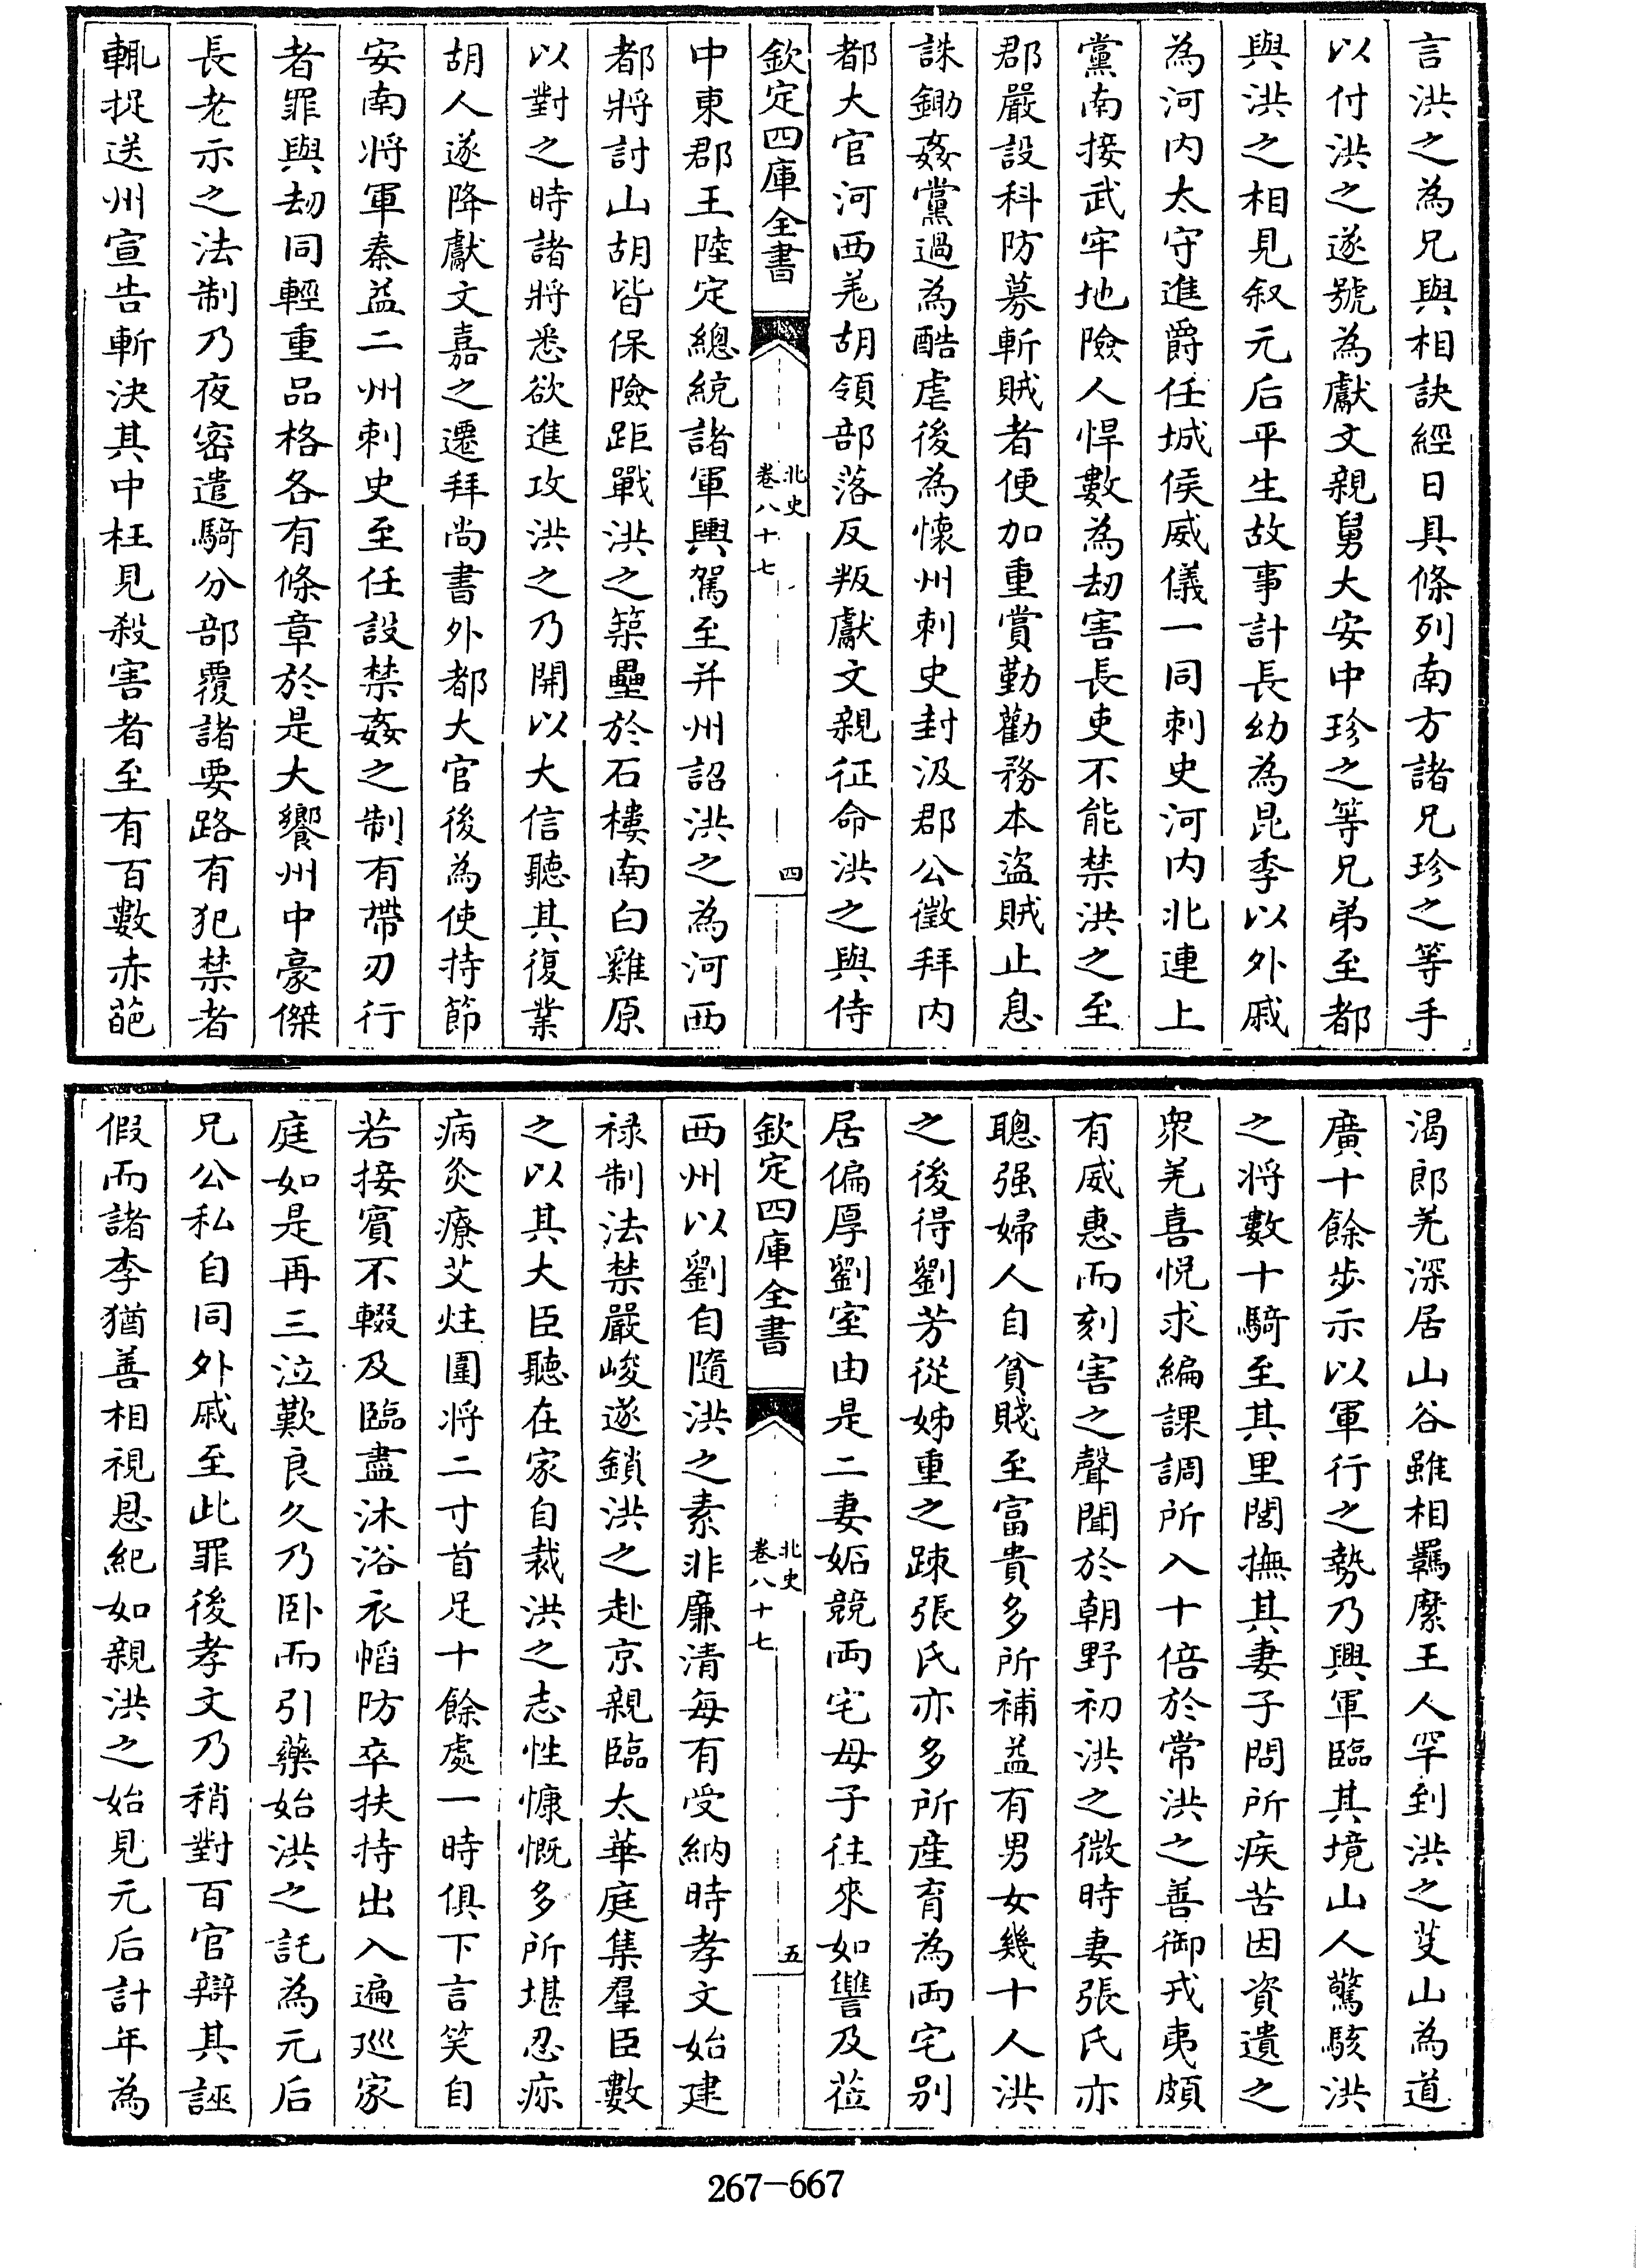 言洪之為兄與相訣經日具條列南方諸兄珍之等手
以付洪之遂號為獻文親舅大安中珍之等兄弟至都
與洪之相見叙元后平生故事計長幼為昆季以外戚
為河内太守進爵任城侯威儀一同刺史河内北連上
黨南接武牢地險人悍數為刧害長吏不能禁洪之至
郡嚴設科防募斬賊者便加重賞勤勸務本盜賊止息
誅鋤姦黨過為酷虐後為懷州刺史封汲郡公徵拜内
都大官河西羌胡領部落反叛獻文親征命洪之與侍
欽定四庫全書
北史
卷八十七
四
中東郡王陸定總統諸軍輿駕至并州詔洪之為河西
都將討山胡皆保險距戰洪之築壘於石樓南白雞原
以對之時諸將悉欲進攻洪之乃開以大信聽其復業
胡人遂降獻文嘉之遷拜尚書外都大官後為使持節
安南將軍秦益二州刺史至任設禁姦之制有帶刃行
者罪與刧同輕重品格各有條章於是大饗州中豪傑
長老示之法制乃夜密遣騎分部覆諸要路有犯禁者
輒捉送州宣告斬決其中枉見殺害者至有百數赤葩
渴郎羌深居山谷雖相羈縻王人罕到洪之芟山為道
廣十餘步示以軍行之勢乃興軍臨其境山人驚駭洪
之將數十騎至其里閭撫其妻子問所疾苦因資遺之
衆羌喜悅求編課調所入十倍於常洪之善御戎夷頗
有威惠而刻害之聲聞於朝野初洪之微時妻張氏亦
聰强婦人自貧賤至富貴多所補益有男女幾十人洪
之後得劉芳從姊重之疎張氏亦多所産育為兩宅别
居偏厚劉室由是二妻妬競兩宅母子往來如讐及莅
欽定四庫全書
北史
卷八十七
五
西州以劉自隨洪之素非廉清每有受納時孝文始建
禄制法禁嚴峻遂鎖洪之赴京親臨太華庭集羣臣數
之以其大臣聽在家自裁洪之志性慷慨多所堪忍疹
病灸療艾炷圍將二寸首足十餘處一時俱下言笑自
若接賓不輟及臨盡沐浴衣幍防卒扶持出入遍廵家
庭如是再三泣歎良久乃卧而引藥始洪之託為元后
兄公私自同外戚至此罪後孝文乃稍對百官辯其誣
假而諸李猶善相視恩紀如親洪之始見元后計年為
267-667